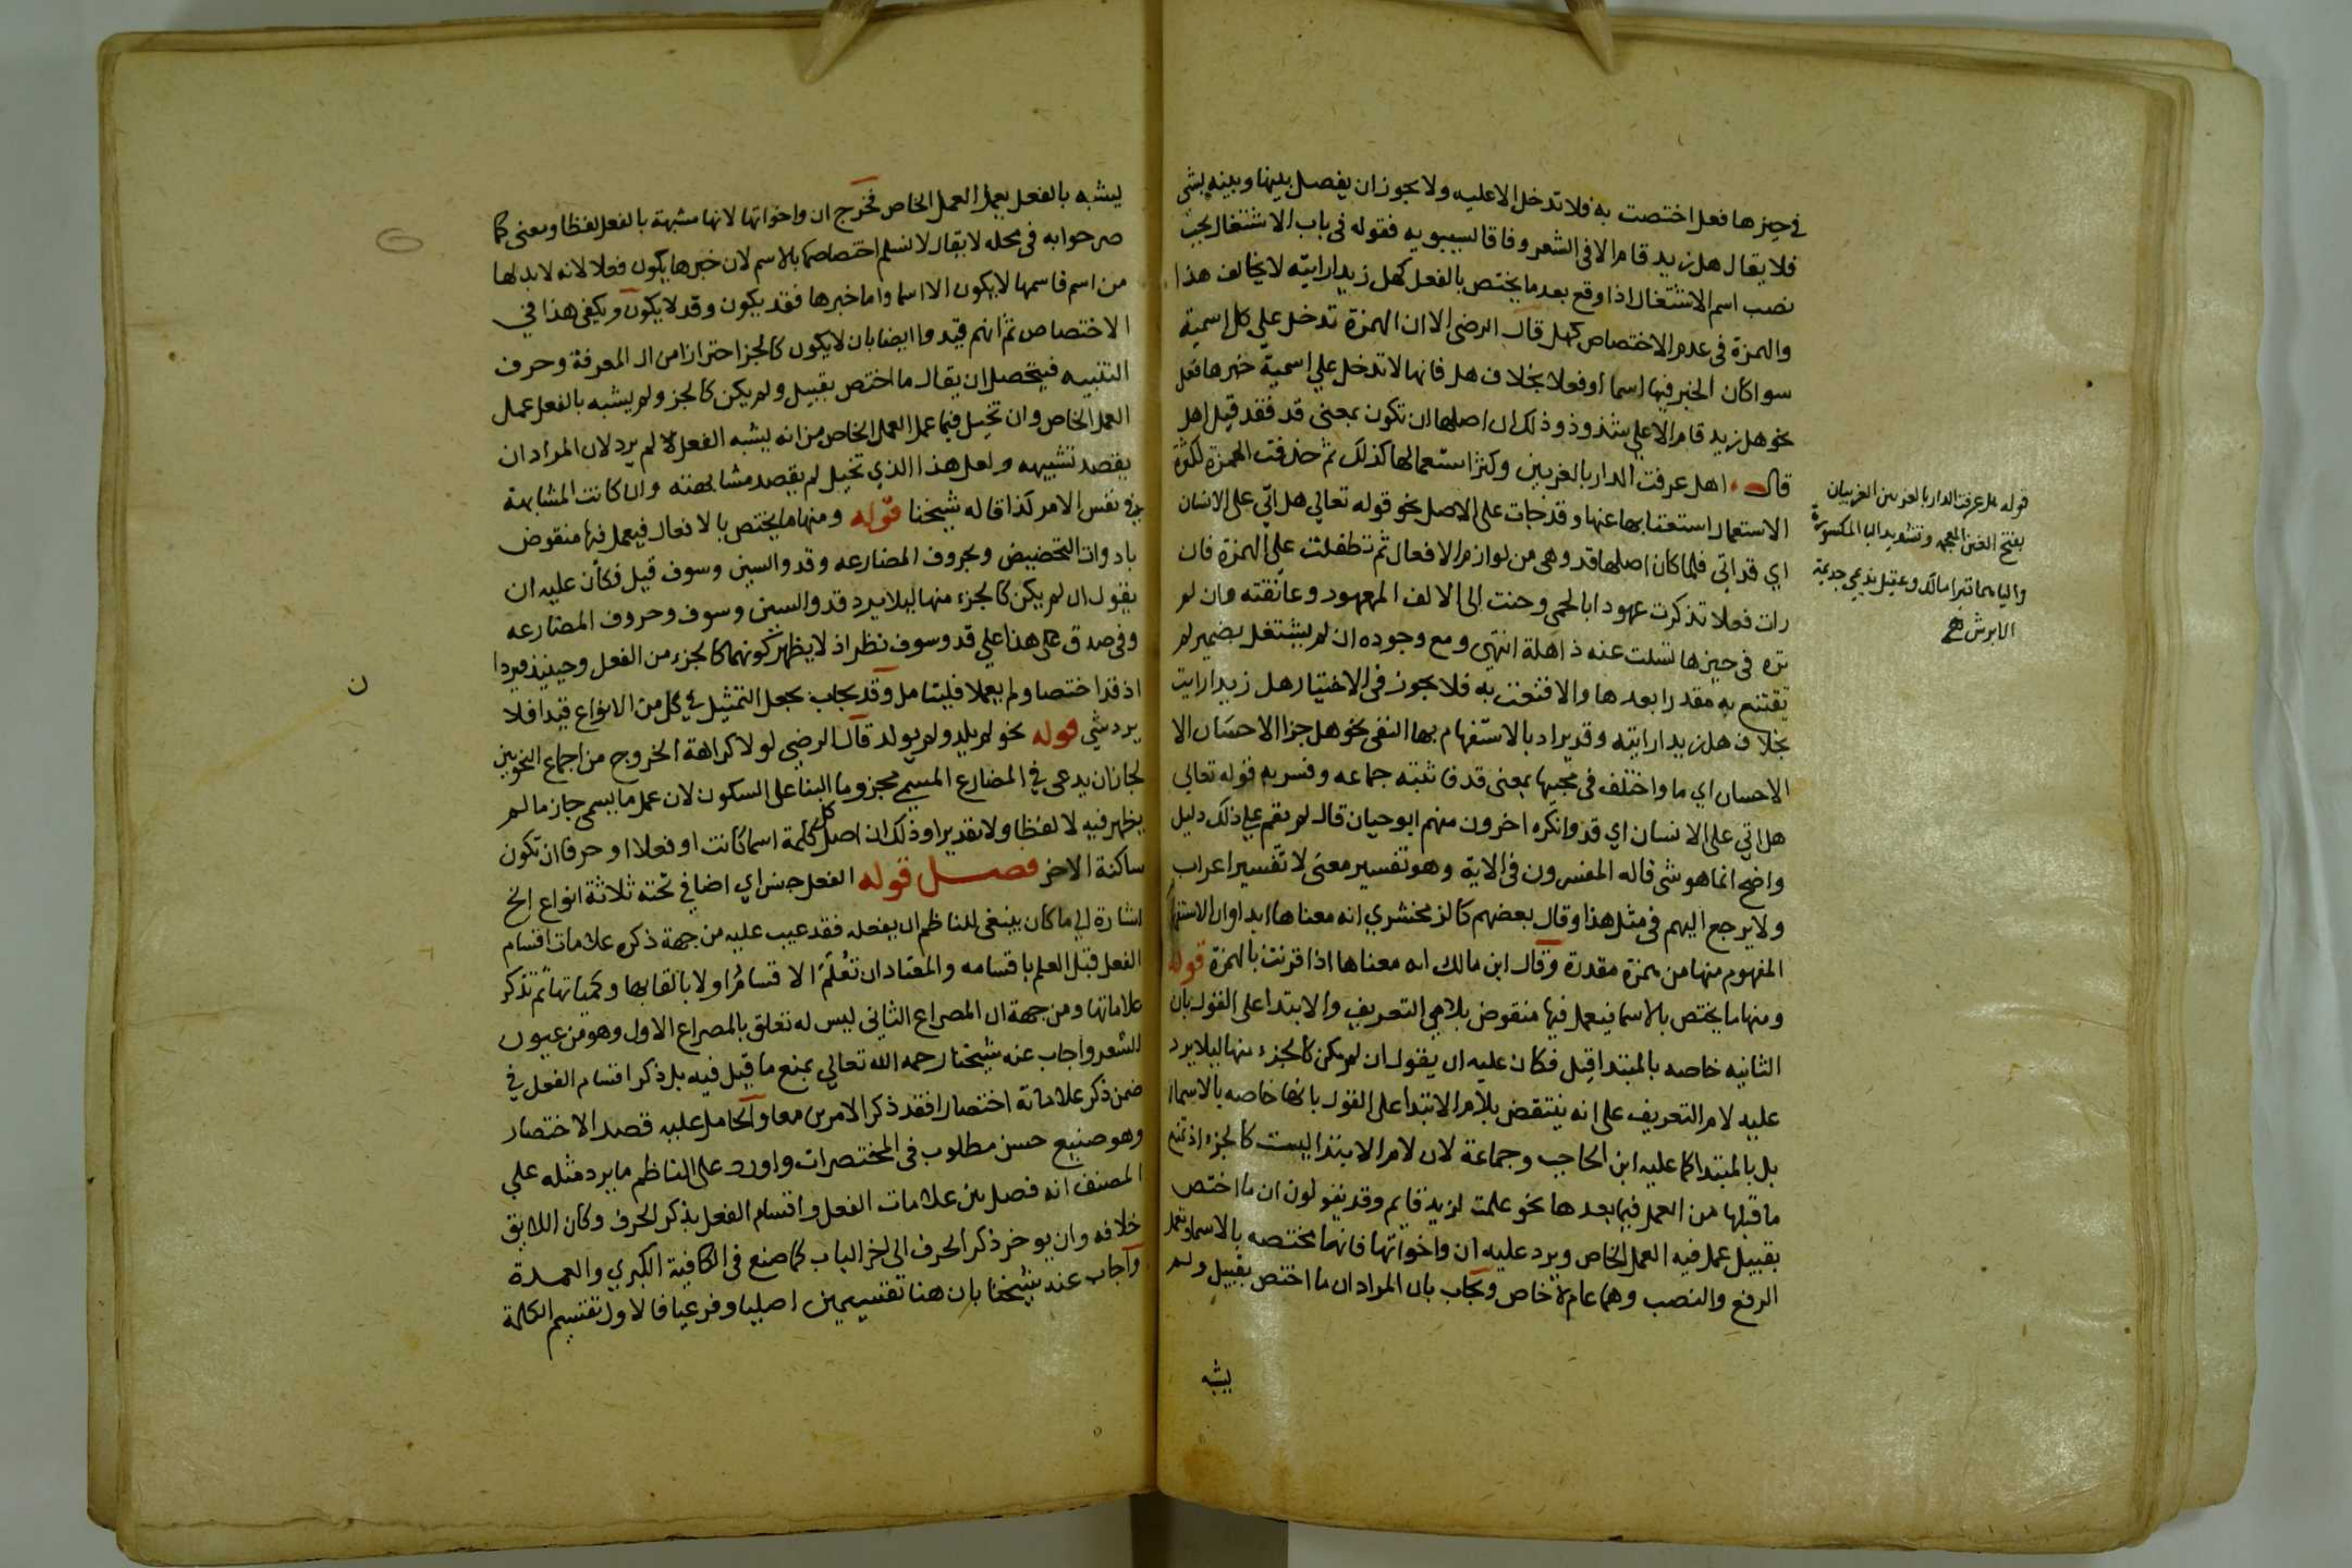 في حيزها فعل اختصت به فلا تدخل الا عليه ولا يجوز ان يفصل بينها وبينه بشي
فلا يقال هل زيد قام الا في الشعر وفاقا لسيبويه فقوله في باب الاشتغال يجب
نصب اسم الاشتغال اذا وقع بعد ما يختص بالفعل كهل زيدا رايته لا يخالف هذا
والهمزة في عدم الاختصاص كهل قال الرضى الا ان الهمزة تدخل علي كل اسمية
سوا كان الخبر فيها اسما او فعلا بخلاف هل فانها لا تدخل علي اسمية خبرها فعل
نحو هل زيد قام الا علي شذوذ وذلك لان اصلها ان تكون بمعنى قد فقد قيل اهل
قال اهل عرفت الدار بالغريين وكثر استعمالها كذلك ثم حذفت الهمزة لكثرة
الاستعمال استغنا بها عنها وقد جات على الاصل نحو قوله تعالي هل اتي على الانسان
اي قد اتي فلما كان اصلها قد وهى من لوازم الافعال ثم تطفلت علي الهمزة فان
رات فعلا تذكرت عهودا بالحمى وحنت الى الالف المعهود وعانقته وان لم
تره في حيزها تسلت عنه ذاهلة انتهي ومع وجوده ان لم يشتغل بضمير لم
تقتنع به مقدرا بعدها والا قنعت به فلا يجوز في الاختيار هل زيدا رايت
بخلاف هل زيدا رايته وقد يراد بالاستفهام بها النفى نحو هل جزا الاحسان الا
الاحسان اي ما واختلف في مجيها بمعنى قد فاثبته جماعه وفسر به قوله تعالي
هل اتي على الانسان اي قد وانكره اخرون منهم ابو حيان قال لم يقم علي ذلك دليل
واضح انما هو شى قاله المفسرون في الاية وهو تفسير معنى لا تفسير اعراب
ولا يرجع اليهم في مثل هذا وقال بعضهم كالزمخشري انه معناها ابدا وان الاستفها
المفهوم منها من همزة مقدرة وقال ابن مالك انه معناها اذا قرنت بالهمزة قوله
ومنها ما يختص بالاسما فيعمل فيها منقوض بلامي التعريف والابتدا على القول بان
الثانيه خاصه بالمبتدا قيل فكان عليه ان يقول ان لم يكن كالجزء منها ليلا يرد
عليه لام التعريف على انه ينتقض بلام الابتدا على القول بانها خاصه بالاسما
بل بالمبتدا كما عليه ابن الحاجب وجماعة لان لام الابتدا ليست كالجزء اذ تمنع
ما قبلها من العمل فيما بعدها نحو علمت لزيد قايم وقد يقولون ان ما اختص
بقبيل عمل فيه العمل الخاص ويرد عليه ان واخواتها فانها مختصه بالاسما وتعمل
الرفع والنصب وهما عام لا خاص ويجاب بان المراد ان ما اختص بقبيل ولم
يشبه
قوله هل عرفت الدار بالغريين الغريبان
بفتح الغين المعجمه وتشديد اليا المكسورة
واليا هما قبرا مالك وعقيل نديمي جديمة
الابرش
يشبه بالفعل يعمل العمل الخاص فخرج ان واخواتها لانها مشبهة بالفعل لفظا ومعنى كما
صرحوا به في محله لا يقال لا نسلم اختصاصها بالاسم لان خبرها يكون فعلا لانه لا بد لها
من اسم فاسمها لا يكون الا اسما واما خبرها فقد يكون وقد لا يكون ويكفي هذا في
الاختصاص ثم انهم قيدوا ايضا بان لا يكون كالجز احترازا من ال المعرفة وحرف
التنبيه فيتحصل ان يقال ما اختص بقبيل ولم يكن كالجز ولم يشبه بالفعل عمل
العمل الخاص وان تخيل فيما عمل العمل الخاص من انه يشبه الفعل لا لم يرد لان المراد ان
يقصد تشبيهه ولعل هذا الذي تخيل لم يقصد مشابهته وان كانت المشابهة
في نفس الامر كذا قاله شيخنا قوله ومنها ما يختص بالافعال فيعمل فيها منقوض
بادوات التحضيض وبحروف المضارعه وقد والسين وسوف قيل فكان عليه ان
يقول ان لم يكن كالجزء منها ليلا يرد قد والسين وسوف وحروف المضارعه
وفي صدق هذا علي قد وسوف نظر اذ لا يظهر كونهما كالجزء من الفعل وحينيذ فيردا
اذ قد اختصا ولم يعملا فليتامل وقد يجاب بجعل التمثيل في كل من الانواع قيدا فلا
يرد شي قوله نحو لم يلد ولم يولد قال الرضي لولا كراهة الخروج من اجماع النحويين
لجاز ان يدعي في المضارع المسمي مجزوما البنا على السكون لان عمل ما يسمى جازما لم
يظهر فيه لا لفظا ولا تقديرا وذلك ان اصل كل كلمة اسما كانت او فعلا او حرفا ان تكون
ساكنة الاخر فصل قوله الفعل جنس اي اضافي تحته ثلاثة انواع الخ
اشارة الي ما كان ينبغى للناظم ان يفعله فقد عيب عليه من جهة ذكره علامات اقسام
الفعل قبل العلم باقسامه والمعتاد ان تعلم الاقسام اولا بالقابها وكمياتها ثم تذكر
علاماتها ومن جهة ان المصراع الثاني ليس له تعلق بالمصراع الاول وهو من عيوب
الشعر واجاب عنه شيخنا رحمه الله تعالي بمنع ما قيل فيه بل ذكر اقسام الفعل في
ضمن ذكر علاماته اختصارا فقد ذكر الامرين معا والحامل عليه قصد الاختصار
وهو صنيع حسن مطلوب في المختصرات واورد على الناظم ما يرد مثله علي
المصنف انه فصل بين علامات الفعل واقسام الفعل بذكر الحرف وكان اللايق
خلافه وان يوخر ذكر الحرف الى اخر الباب كما صنع في الكافية الكبري والعمدة
واجاب عنه شيخنا بان هنا تقسيمين اصليا وفرعيا فالاول تقسيم الكلمة
ن